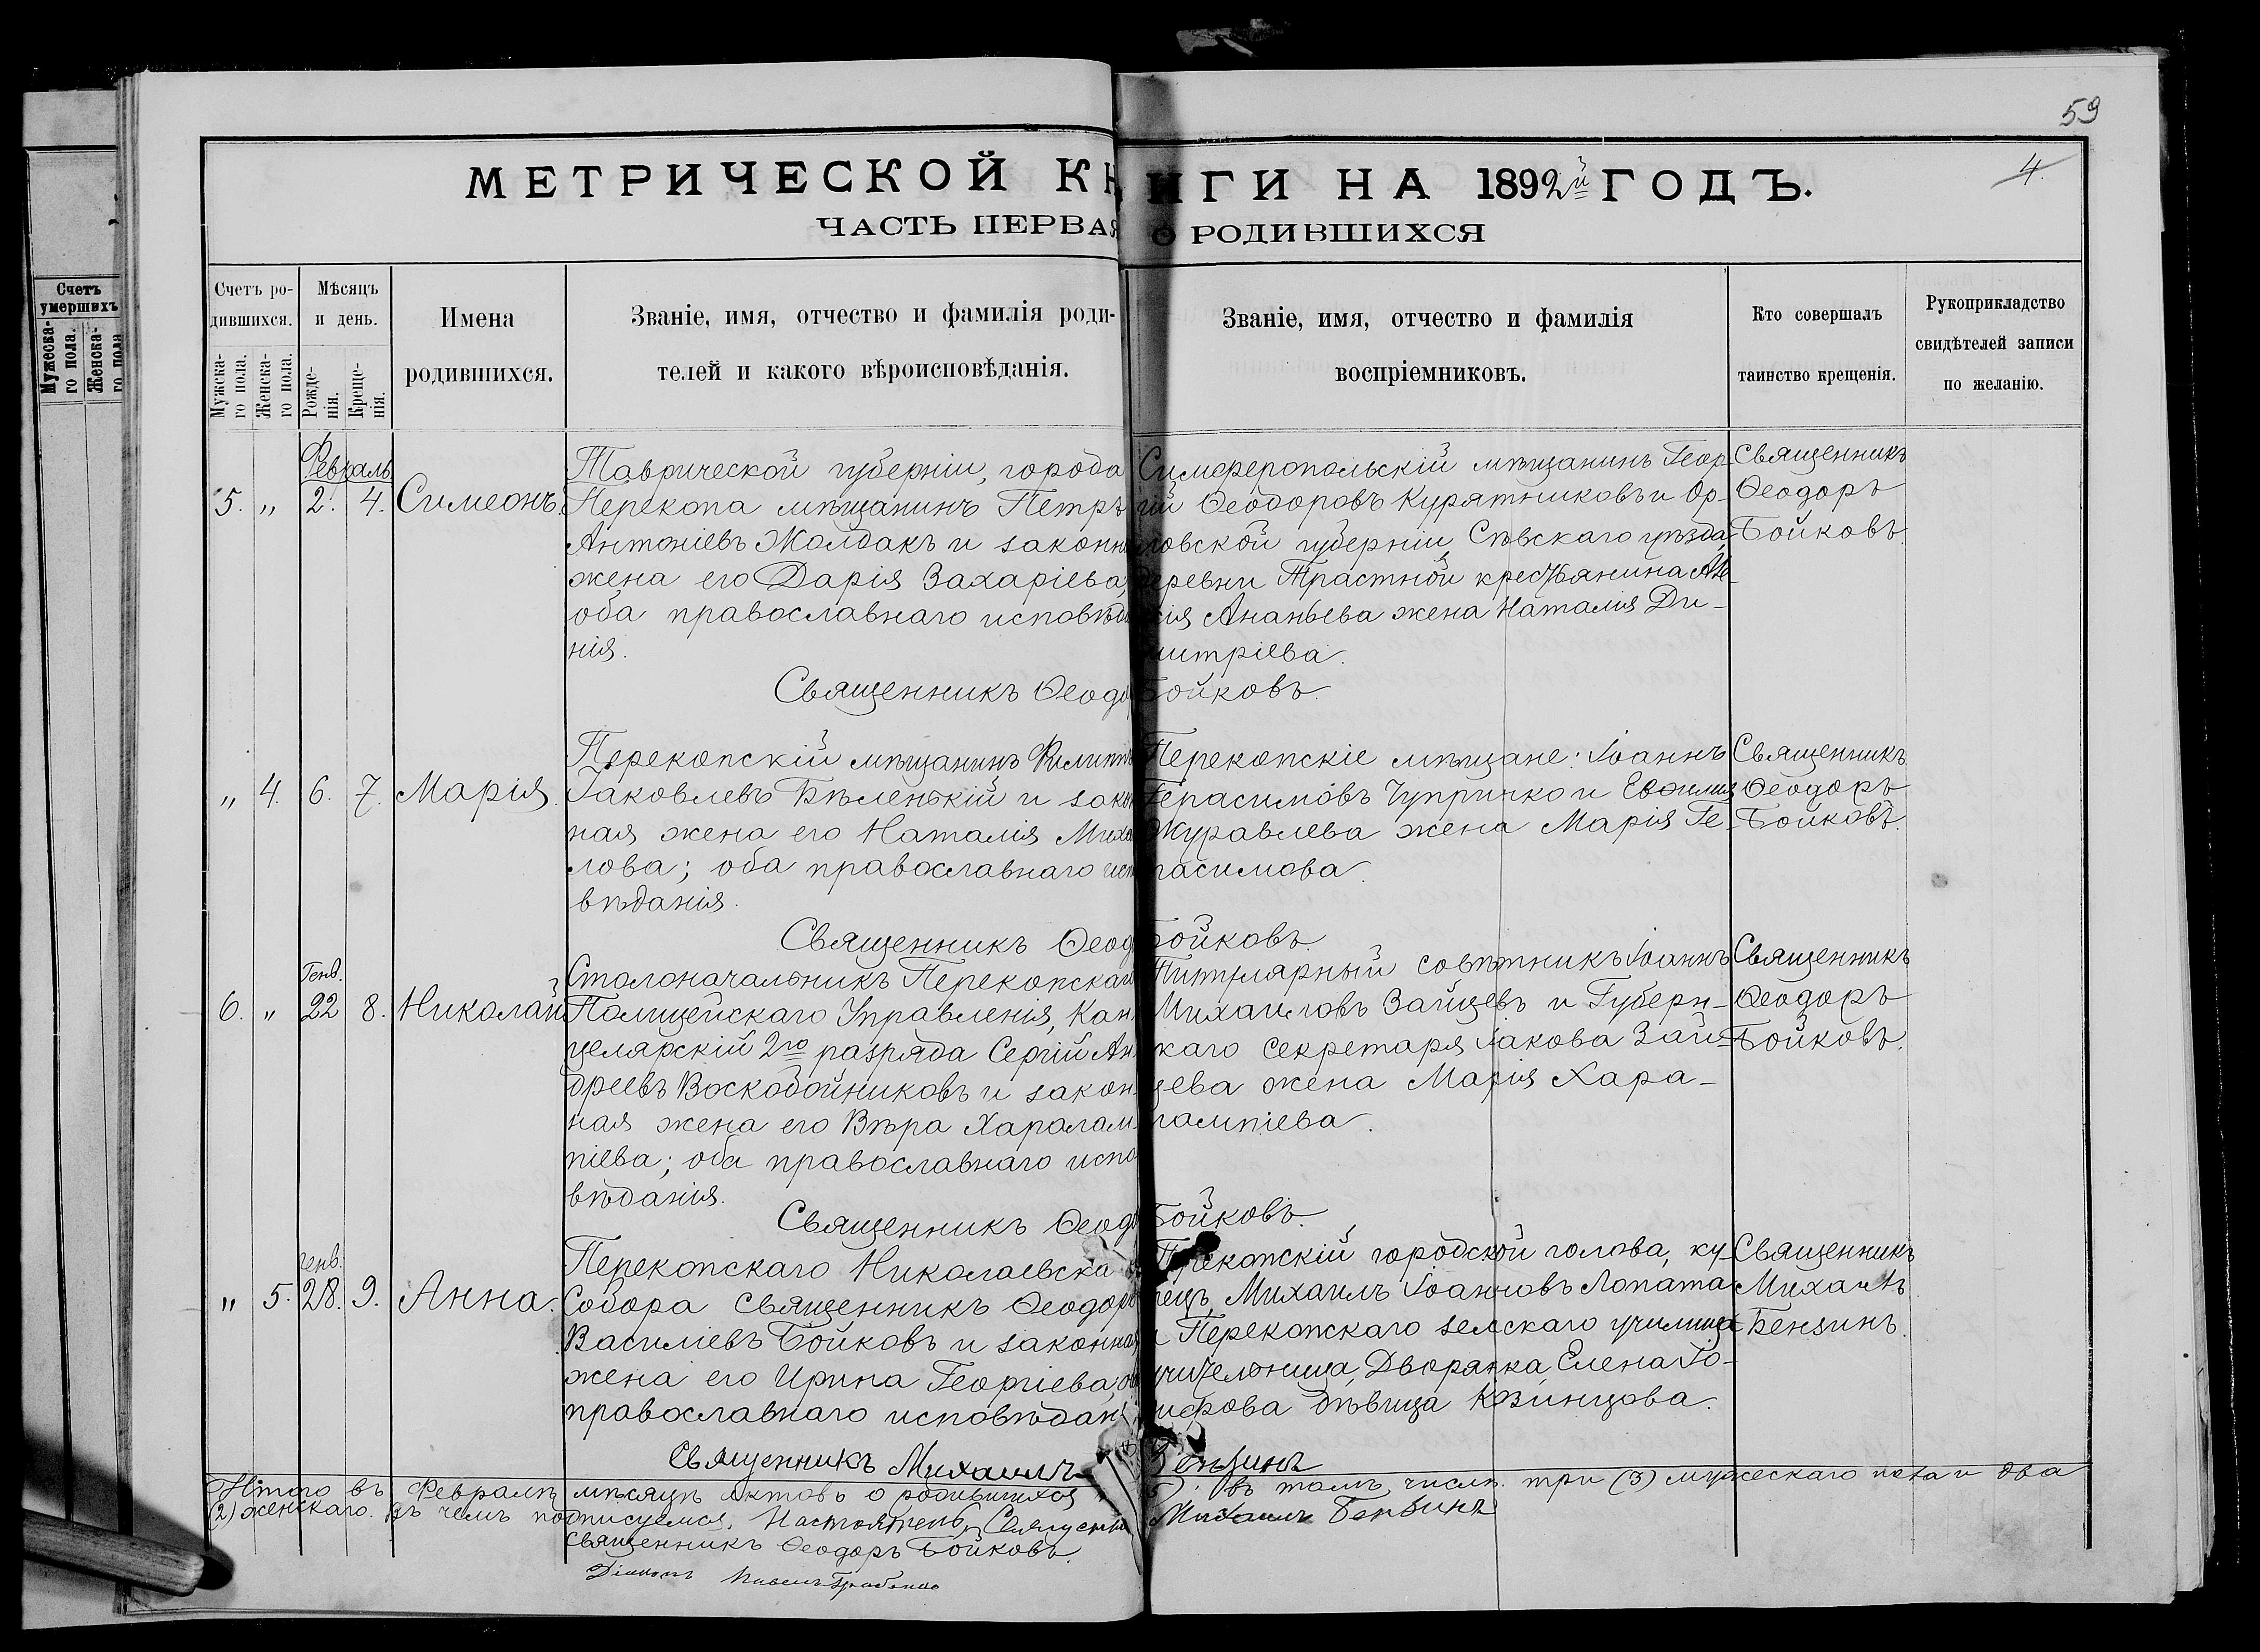 59
4.
МЕТРИЧЕСКОЙ КНИГИ НА 1892й ГОДЪ.
ЧАСТЬ ПЕРВАЯ О РОДИВШИХСЯ
Счетъ умершихъ
Мужеска-го пола.
Женска-го пола
Счетъ ро-дившихся.
Мужска-го пола.
Женска-го пола.
Мѣсяцъ и день.
Рожде-нія.
Креще-нія.
Имена родившихся.
Званіе, имя, отчество и фамилія роди-
телей и какого вѣроисповѣданія.
Званіе, имя, отчество и фамилія
воспріемниковъ.
Кто совершалъ
таинство крещенія.
Рукоприкладство
свидѣтелей записи
по желанію.
Февраль
5. „ 2. 4. Симеонъ.
Таврической губерніи, города
Перекопа мѣщанинъ Петръ
Антоніевъ Жолдакъ и законн
жена его Дарія Захаріева,
оба православнаго исповѣда
нія.
Симферопольскій мѣщанинъ Геор-
гій Ѳеодоровъ Курятниковъ и Ор-
ловской губерніи, Сѣвскаго уѣзда,
деревни Трастной крестьянина
Ананьева жена Наталія Ди-
митріева.
Священникъ
Ѳеодоръ
Бойковъ.
Священникъ Ѳеодо Бойковъ.
„ 4. 6. 7. Марія.
Перекопскій мѣщанинъ Филиппъ
Іаковлевъ Бѣленькій и закон
ная жена его Наталія Михаи
лова; оба православнаго исп
вѣданія.
Перекопскіе мѣщане: Іоаннъ
Герасимовъ Чупринко и
Журавлева жена Марія Ге-
расимова.
Священникъ
Ѳеодоръ
Бойковъ.
Священникъ Ѳеод Бойковъ.
Генв.
6. „ 22 8. Николай
Столоначальникъ Перекопскаго
Полицейскаго Управленія, Кан
целярскій 2го разряда Сергій Ан
дреевъ Воскобойниковъ и закон-
ная жена его Вѣра Харалам-
піева; оба православнаго испо
вѣданія.
Титулярный совѣтникъ Іоаннъ
Михаиловъ Зайцевъ и Губерн-
скаго секретаря Іакова Зай-
цева жена Марія Хара-
лампіева.
Священникъ
Ѳеодоръ
Бойковъ.
Священникъ Ѳеодо Бойковъ.
генв.
„ 5. 28. 9. Анна.
Перекопскаго Николаевска
Собора священникъ Ѳеодоръ
Василіевъ Бойковъ и законная
жена его Ирина Георгіева, оба
православнаго исповѣдані
Перекопскій городской голова, ку-
пецъ, Михаилъ Іоанновъ Лопата
и Перекопскаго земскаго училища
учительница, Дворянка, Елена Іо-
сифова дѣвица Козинцова.
Священникъ
Михаилъ
Бензинъ.
Священникъ Михаилъ Бензинъ
Итого въ Февралѣ мѣсяцѣ актовъ о родившихся 5). Въ томъ числѣ три (3) мужескаго пола и два
(2) женскаго. Въ чемъ подписуемся. Настоятель, Священ Михаилъ Бензинъ
Священникъ Ѳеодоръ Бойковъ.
Діаконъ Павелъ